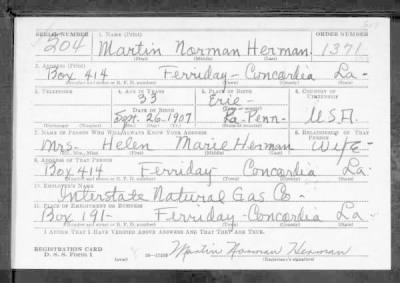 SERIAL NUMBER 1. NAME (Print) ORDER NUMBER
204 Martin Norman Herman 1371
(First) (Middle) (Last)
2. ADDRESS (Print)
Box 414 Ferriday - Concordia La -
3. TELEPHONE 4. AGE IN YEARS 5. PLACE OF BIRTH 6. COUNTRY OF CITIZENSHIP
33 Erie -
DATE OF BIRTH
Sept. 26-1907 Penn - U.S.A.
7. NAME OF PERSON WHO WILL ALWAYS KNOW YOUR ADDRESS 8. RELATIONSHIP OF THAT PERSON
Mrs - Helen Marie Herman Wife -
(Mr., Mrs., Miss) (First) (Middle) (Last)
9. ADDRESS OF THAT PERSON
Box 414 Ferriday Concordia La -
10. EMPLOYER'S NAME
Interstate Natural Gas Co -
11. PLACE OF EMPLOYMENT OR BUSINESS
Box 191 - Ferriday - Concordia La -
I AFFIRM THAT I HAVE VERIFIED ABOVE ANSWERS AND THAT THEY ARE TRUE.
REGISTRATION CARD
D. S. S. Form 1 Martin Norman Herman
(Registrant's signature)